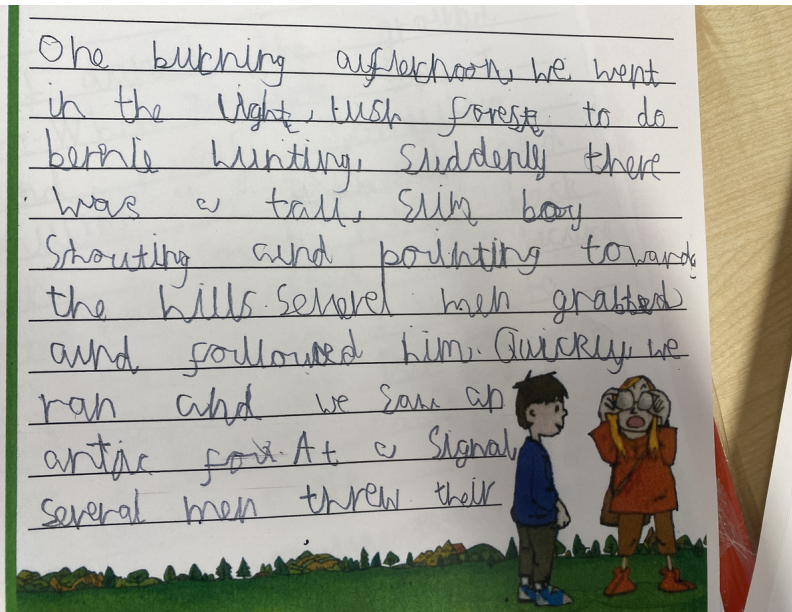 One burning afterhoon, we went
in the light, lush forest to do
bernie hunting, suddenly there
was a tall, slim boy
shouting aund pointing towards
the hills. Severel men grabbed
aund followed him. Quickly, we
ran and we saw an
artic fox. At a signal
several men threw their